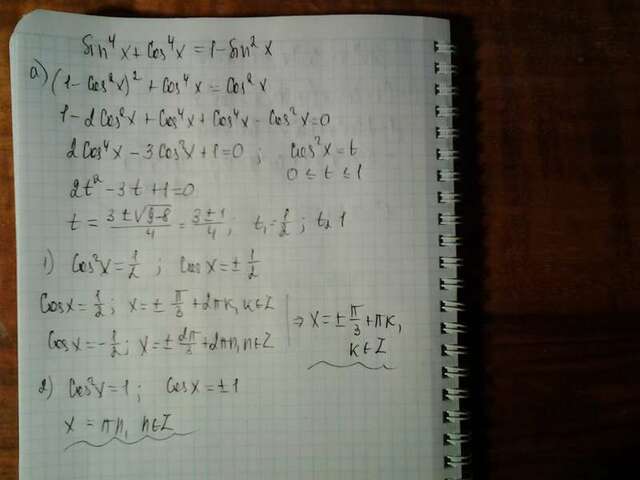 sin⁴x + cos⁴x = 1 - sin²x
a) (1 - cos²x)² + cos⁴x = cos²x
1 - 2cos²x + cos⁴x + cos⁴x - cos²x = 0
2cos⁴x - 3cos²x + 1 = 0 ; cos²x = t
0 ≤ t ≤ 1
2t² - 3t + 1 = 0
t = (3 ± √(9-8))/4 = (3 ± 1)/4 ; t₁ = 1/2 ; t₂ 1
1) cos²x = 1/2 ; cosx = ± 1/2
cosx = 1/2 ; x = ± π/3 + 2πk, k∈Z
cosx = -1/2 ; x = ± 2π/3 + 2πn, n∈Z
⇒ x = ± π/3 + πk,
k∈Z
2) cos²x = 1 ; cosx = ± 1
x = πn, n∈Z